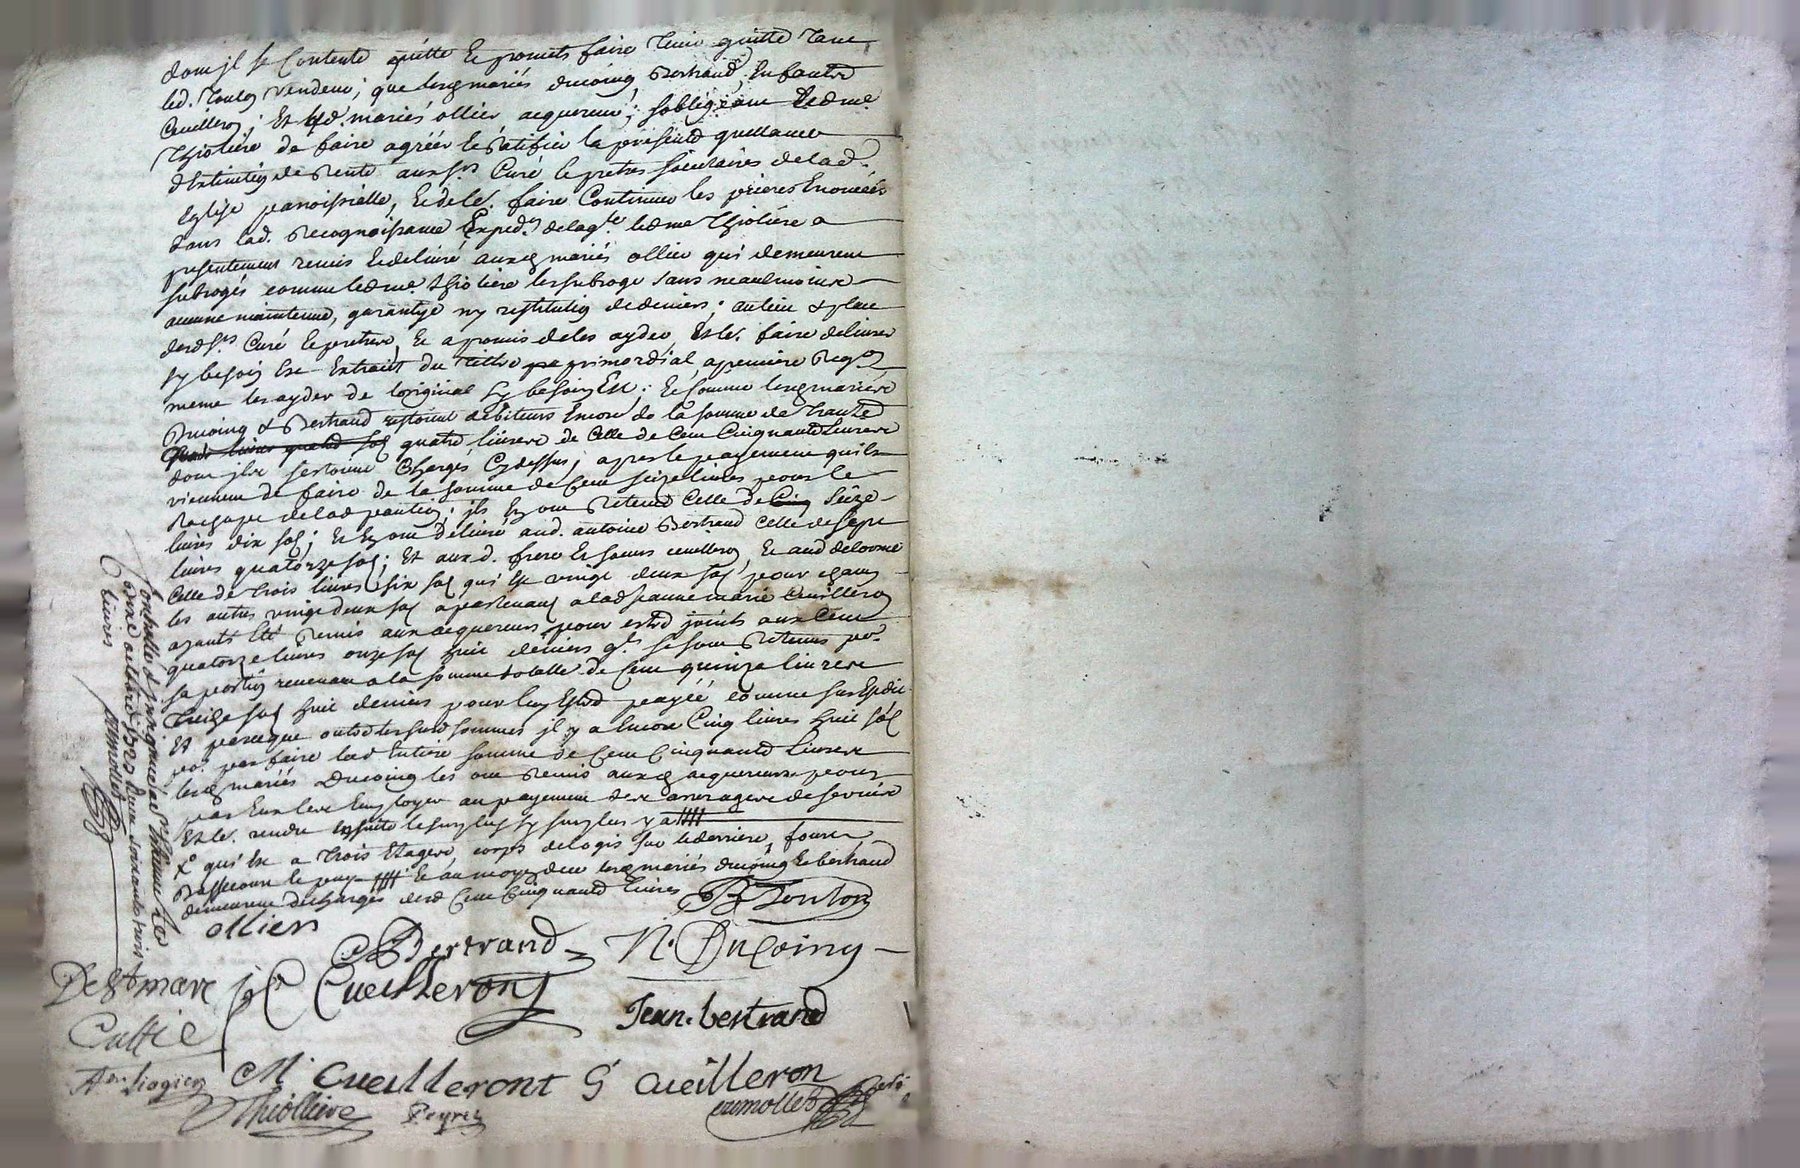 dont il se Contente quitte & promets faire tenir quitte tant
led. Toulon vendeur, que lesq mariés ducoing Bertrand, Enfants
Cueilleron; Et lesd. mariés ollier acquereurs; sobligeant led me
Thioliere de faire agréér & Ratifier la présente quittance
dExtinction de Rente aux srs Curé & prêtres sociétaires de lad.
Eglise paroissialle, & de les faire Continuer les prieres Enoncéés
dans lad. Recognoissance Exped. de laq.le led me Thioliére a
presentement remis & delivré auxq mariés ollier qui demeurent
subrogés comme led me. Thioliere les subroge sans neanlmoins
aucune maintenue, garantye ny restitution de deniers; au lieu & place
desd srs Curé & pretres, & a promis de les ayder, & les faire delivrer
sy besoin Est Extrait du tiltre primordial a premiere Reqon
meme les ayder de loriginal sy besoin Est; & comme lesq mariés
Ducoing & Bertrand restoient débiteurs Encore de la somme de trante
quatre livres de Celle de Cent Cinquante Livres
dont ils sestoient Chargés Cydessus; apres le payement quils
viennent de faire de la somme de Cent seize livres pour le
Rachapt de lad pention; ils En ont Retenu Celle de seize
livres dix sols; & En ont délivré aud. antoine Bertrand Celle de sept
livres quatorze sols; Et aux d. frere & soeurs cueilleron, & aud delorme
Celle de trois livres six sols qui Est vingt deux sols pour chacun
les autres vingt deux sols apartenants a lad jeanne marie Cueilleron
ayants Eté Remis aux acquereurs pour estre joints aux Cent
quatorze livres onze sols huit deniers qls se sont Retenus pr.
sa portion revenant a la somme totalle de Cent quinze livres
treize sols huit deniers pour luy Estre payéé comme sus Est dit
Et parceque outre les susd sommes il y a Encore Cinq livres huit sols
pr. parfaire lad Entiere somme de Cent Cinquante Livres
lesq mariés Ducoing les ont Remis auxq acquereurs pour
par Eux les Employer au payement des arrerages de servis
& les rendre Ensuite le surplus sy surplus y a
x qui Est a trois Etages, corps de logis sur le derriere,
& au moyen dece lesq mariés ducoing & bertrand
demeurent dechargés desd Cent Cinquante livres
B Toulon
ollier
Bertrand N. DuCoing
De St marc Cueilleron
Jean. bertrand
M Cueilleront G Cueilleron
Thiolliere Peyret
Cremollet
Controllé
livres
Cremollet